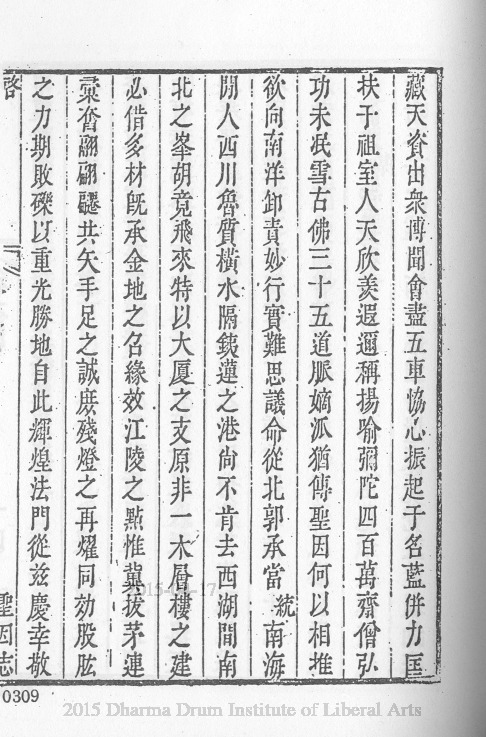 藏天資出衆博聞會盡五車恊心振起于名藍併力匡
扶于祖室人天欣羨遐邇稱揚喻彌陀四百萬齋僧弘
功未泯雪古佛三十五道脈嫡派猶傳聖因何以相推
欲向南洋卸責妙行實難思議命從北郭承當 統 南海
閒人西川魯質橫水隔鉄蓮之港尚不肯去西湖間南
北之峯胡竟飛來特以大厦之支原非一木層樓之建
必借多材旣承金地之召緣效江陵之點惟冀拔茅連
彙奮翮翩共矢手足之誠庶殘燈之再燿同効股肱
之力期敗礫以重光勝地自此輝煌法門從兹慶幸敬
啓
聖因志
0309
2015 Dharma Drum Institute of Liberal Arts